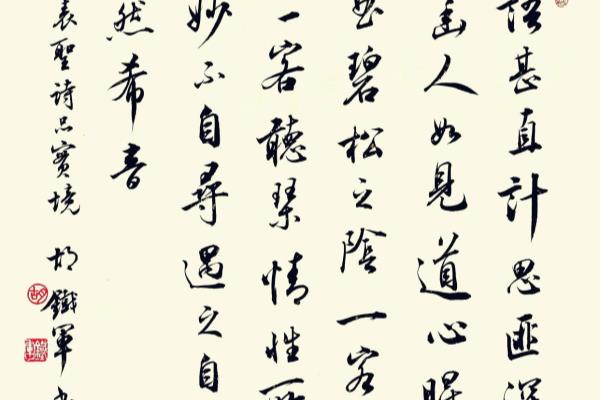 語甚直計思匪深
幽人如見道心晴
曲碧松之陰一客
一客聽琴情性所
妙不自尋遇之自
然希音
表聖詩品實境 胡鐵軍書